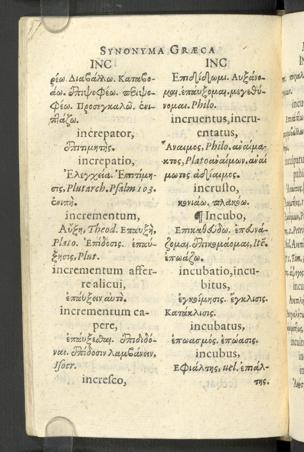 SYNONYMA GRÆCA
INC
ρέω. Διαβάλλω. Καταβο-
άω. ἐπιψεφέω. ἐπιψε-
φέω. Προσεγκαλῶ. ἐπι-
increpator,
ἐπιτιμητής.
increpatio,
Ἐλεγχεία. Ἐπιτίμη-
σις. Plutarch. Psalm 103.
incrementum,
Αὔξη, Theod. Επαυξὴ,
Plato. Ἐπίδοσις. ἐπαύ-
ξησις, Plut.
incrementum affer-
re alicui,
ἐπαύξειν αὐτό.
incrementum ca-
pere,
ἐπαύξεσθαι. ἐπιδιδό-
ναι. ἐπίδοσιν λαμβάνειν,
Isocr.
incresco,
INC
Επιδίδωμι. Αυξάνο-
μαι. ἐπαύξομαι. μεγεθύ-
νομαι. Philo.
incruentus, incru-
entatus,
Ἄναιμος, Philo. ἀναίμα-
κτος, Plato ἀναίμων. ἀναι
μωτος
incrusto,
κονιάω. πλακόω.
¶ Incubo,
Επικαθεύδω.
ἐπωάζω.
incubatio, incu-
bitus,
ἐγκοίμησις. ἔγκλισις.
Κατάκλισις.
incubatus,
ἐπωασμός. ἐπώασις.
incubus,
Εφιάλτης, uel. ἐπιάλ-
της.